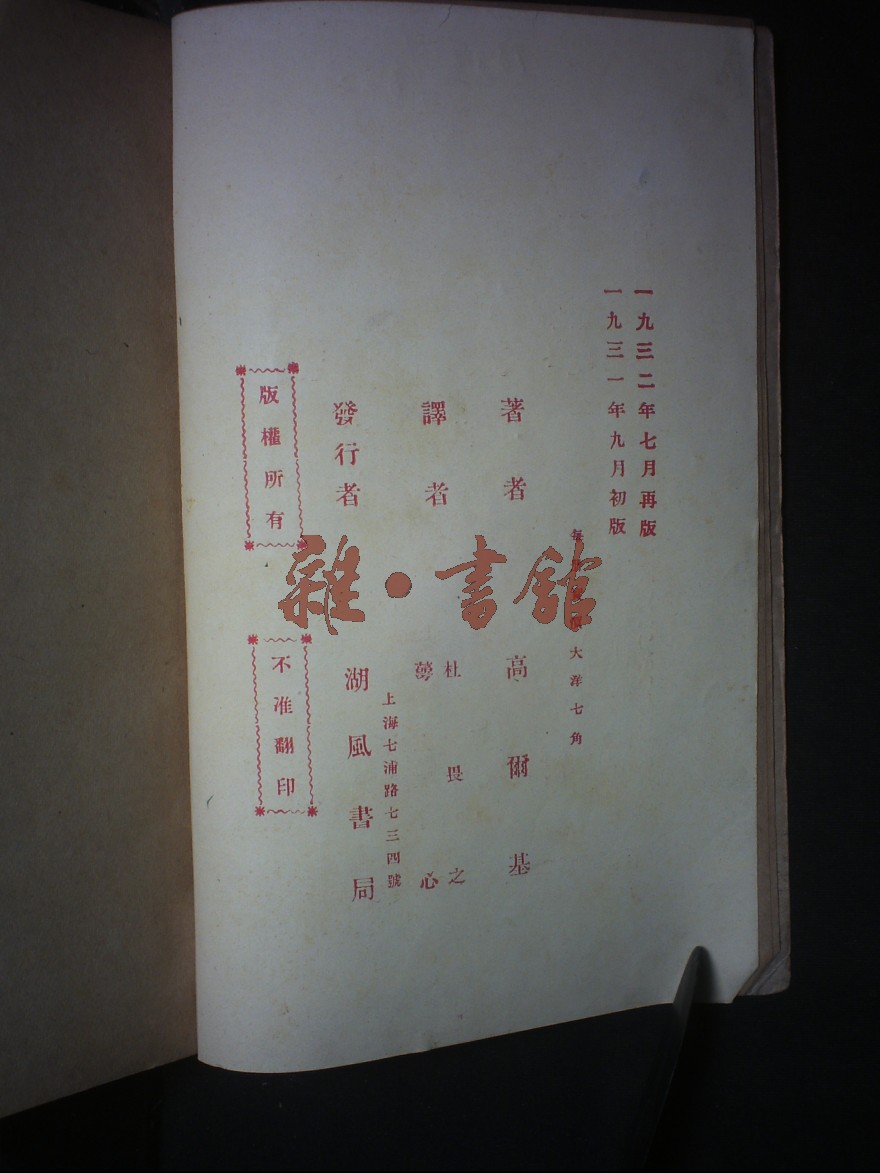 一九三二年七月再版
一九三一年九月初版
每 價大洋七角
著者 高爾基
譯者 杜畏之
萼心
發行者 湖風書局
上海七浦路七三四號
版權所有
不准翻印
雜·書館